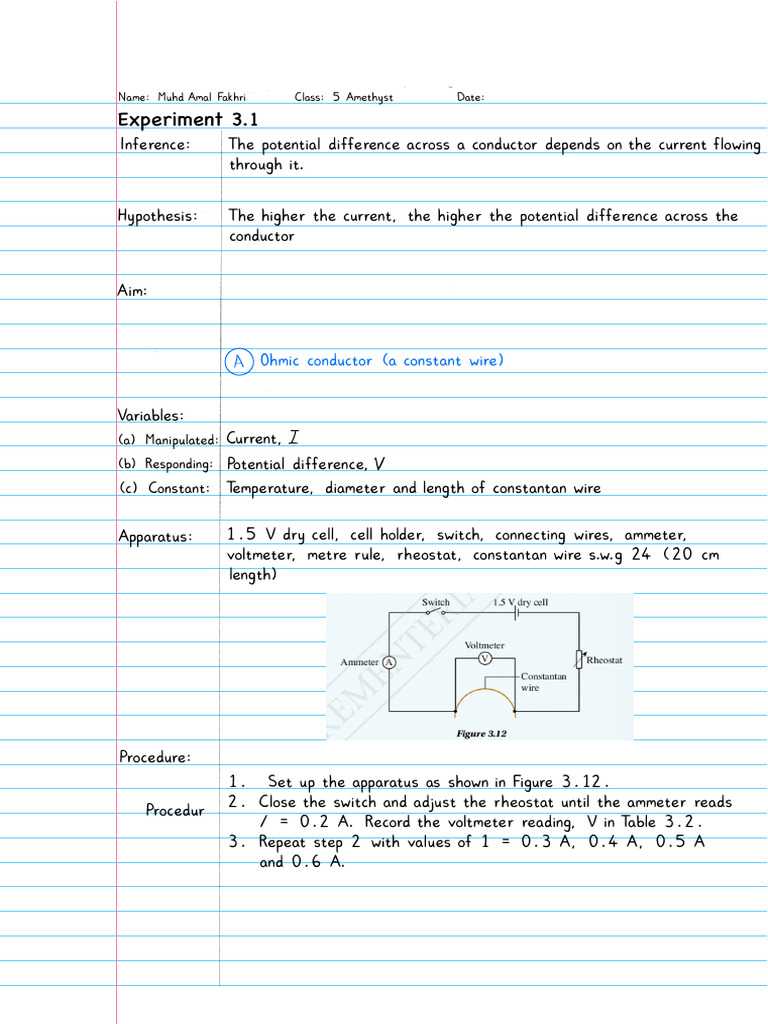 Name: Muhd Amal Fakhri Class: 5 Amethyst Date:
Experiment 3.1
Inference: The potential difference across a conductor depends on the current flowing
through it.
Hypothesis: The higher the current, the higher the potential difference across the
conductor
Aim:
A Ohmic conductor (a constant wire)
Variables:
(a) Manipulated: Current, I
(b) Responding: Potential difference, V
(c) Constant: Temperature, diameter and length of constantan wire
Apparatus: 1.5 V dry cell, cell holder, switch, connecting wires, ammeter,
voltmeter, metre rule, rheostat, constantan wire s.w.g 24 (20 cm
length)
Switch 1.5 V dry cell
Voltmeter
Ammeter A V Rheostat
Constantan
wire
KEMENTERIA
Figure 3.12
Procedure:
1. Set up the apparatus as shown in Figure 3.12.
Procedur 2. Close the switch and adjust the rheostat until the ammeter reads
/ = 0.2 A. Record the voltmeter reading, V in Table 3.2.
3. Repeat step 2 with values of 1 = 0.3 A, 0.4 A, 0.5 A
and 0.6 A.